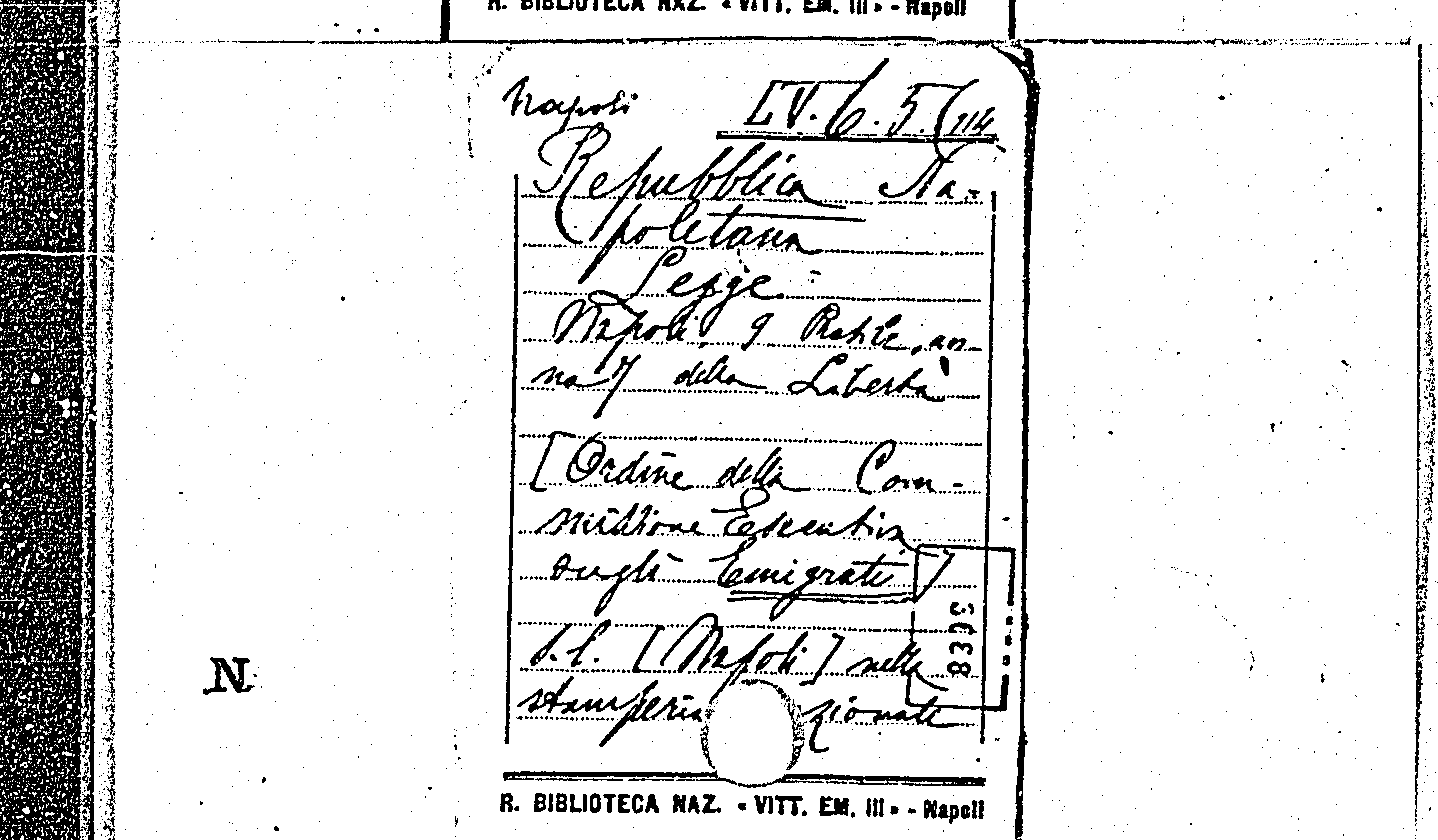 R. BIBLIOTECA NAZ. « VITT. EM. III » - Napoli
Napoli LV. 6. 5.(114
Repubblica Na-
poletana
Legge.
Napoli, 9 Pratile, an-
no 7 della Libertà
[Ordine della Com-
missione Esecutiva
sugli Emigrati]
s. l. [Napoli] nella
stamperia zionale
8303
N
R. BIBLIOTECA NAZ. « VITT. EM. III » - Napoli